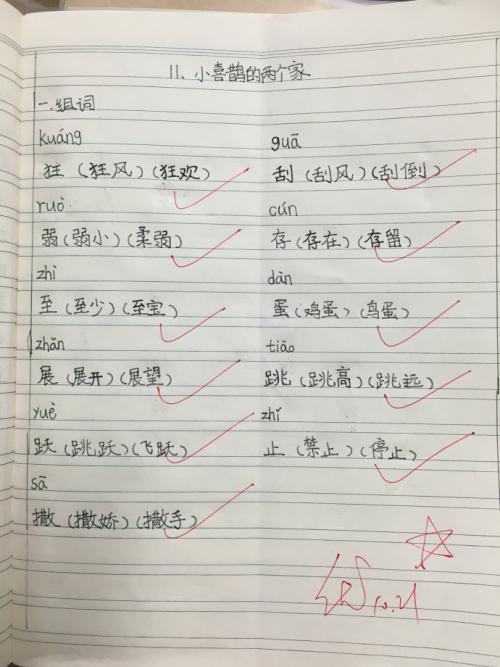 11、小喜鹊的两个家
一.组词
kuáng guā
狂（狂风）（狂欢） 刮（刮风）（刮倒）
ruò cún
弱（弱小）（柔弱） 存（存在）（存留）
zhì dàn
至（至少）（至宝） 蛋（鸡蛋）（鸟蛋）
zhǎn tiào
展（展开）（展望） 跳（跳高）（跳远）
yuè zhǐ
跃（跳跃）（飞跃） 止（禁止）（停止）
sā
撒（撒娇）（撒手）
10.21